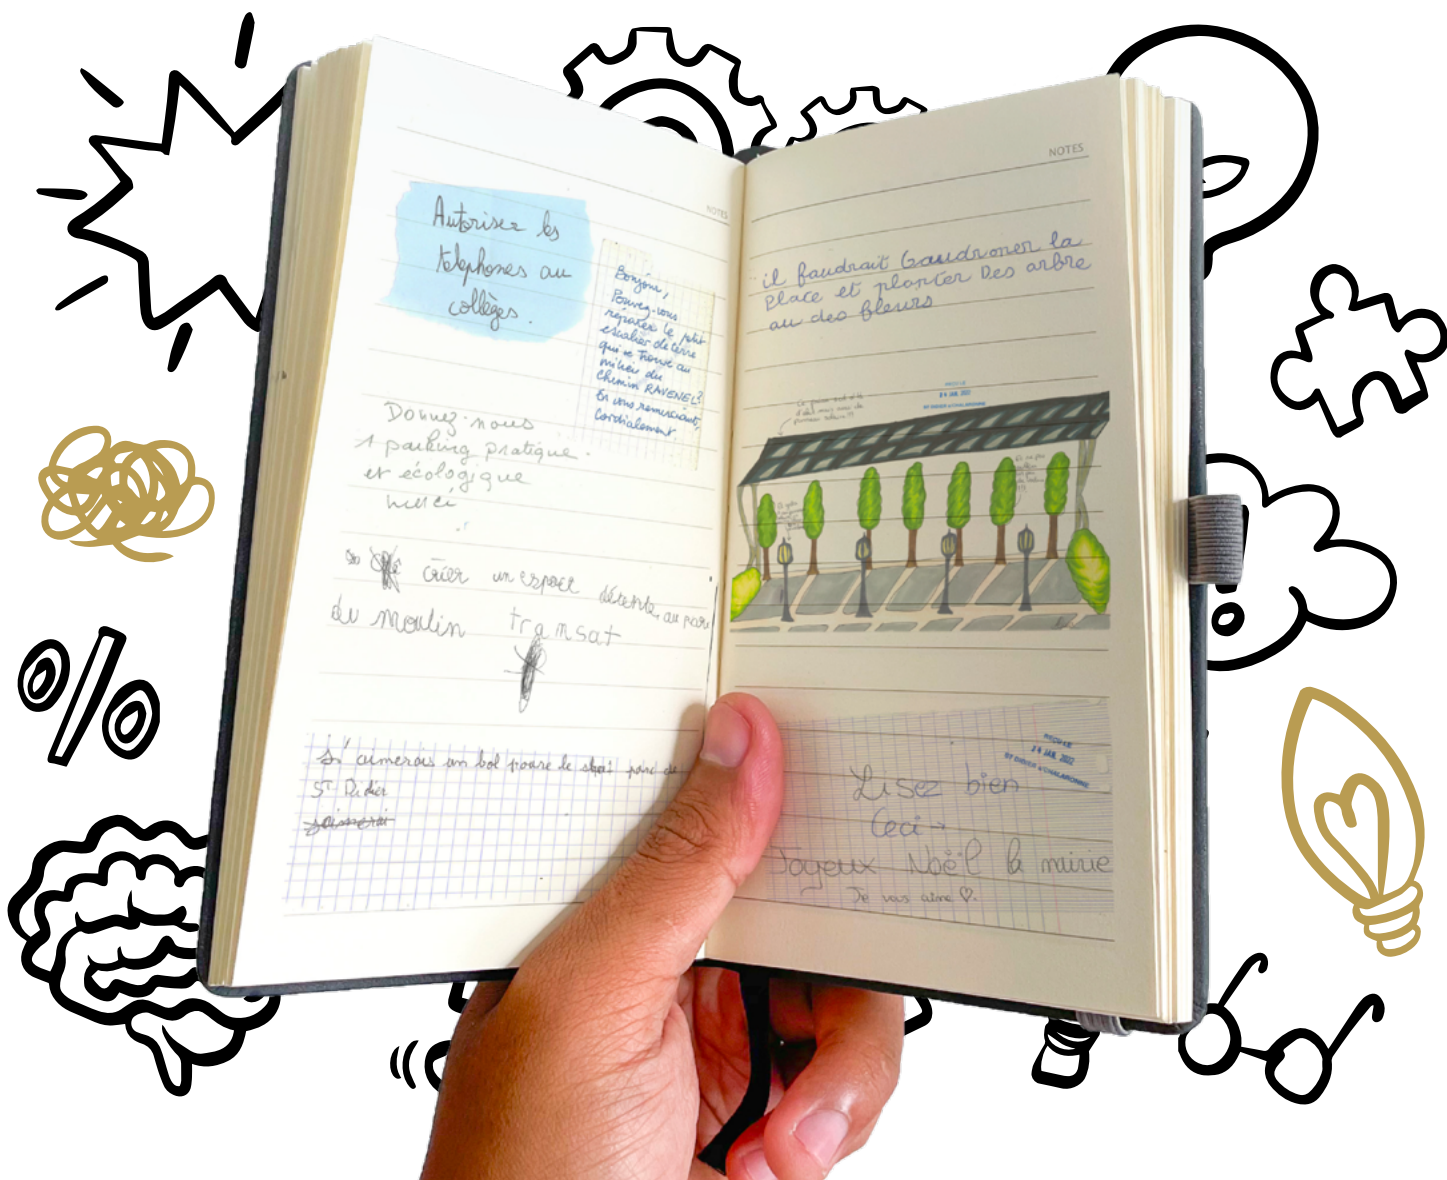 NOTES
Autoriser les
telephones au
collèges.
Bonjour,
Pouvez-vous
réparer le petit
escalier de terre
qui se trouve au
milieu du
chemin RAVENEL?
En vous remerciant,
Cordialement.
Donnez-nous
1 parking pratique
et écologique
merci
créer un espace détente, au parc
du moulin transat
J'aimerais un bol pour le parc de
ST Didier
NOTES
il faudrait Gaudronner la
place et planter Des arbre
au des fleurs
24 JAN. 2022
ST DIDIER S/CHALARONNE
24 JAN. 2022
ST DIDIER S/CHALARONNE
Lisez bien
Ceci →
Joyeux Noël la mairie
Je vous aime ♡.
%